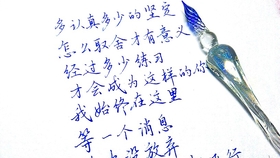 多认真多少的坚定
怎么取舍才有意义
经过多少练习
才会成为这样的你
我始终在这里
等一个消息
没放弃